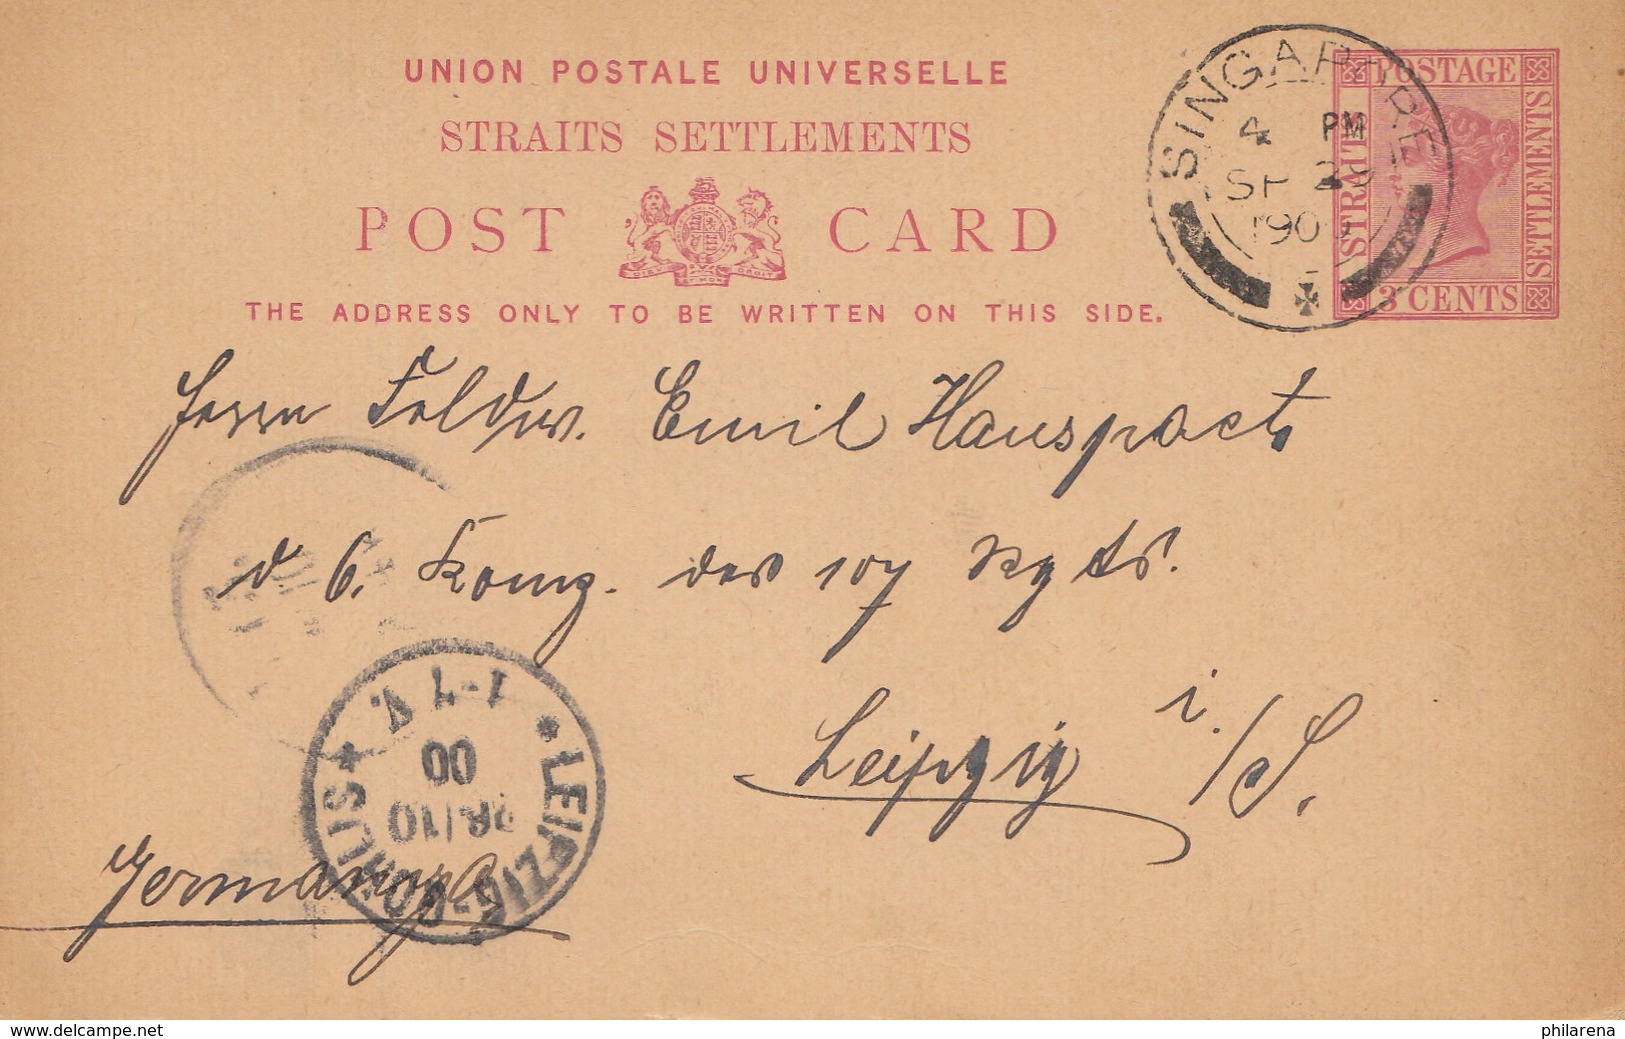 UNION POSTALE UNIVERSELLE
STRAITS SETTLEMENTS
POST CARD
THE ADDRESS ONLY TO BE WRITTEN ON THIS SIDE.
POSTAGE
STRAITS
SETTLEMENTS
3 CENTS
SINGAPORE
4 PM
SP
190
Herrn Feldw. Emil Hauspach
d. 6. Komp. des 107 Rgts.
Leipzig i/S.
Germany
LEIPZIG-GOHLIS
/10
00
1-7 V.
www.delcampe.net
philarena